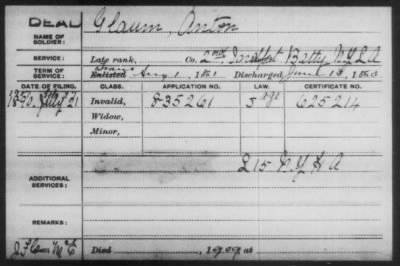 DEAD
NAME OF SOLDIER: Glaum, Anton
SERVICE: Late rank, Co. 2nd Indpt Batty N.Y.L.A
TERM OF SERVICE: Enlisted Aug 1, 1861 Discharged June 13, 1863
DATE OF FILING. CLASS. APPLICATION NO. LAW. CERTIFICATE NO.
1890 July 21 Invalid, 835261 625214
Widow,
Minor,
ADDITIONAL SERVICES: L 15 N.Y. H A
REMARKS:
Died 1909, at